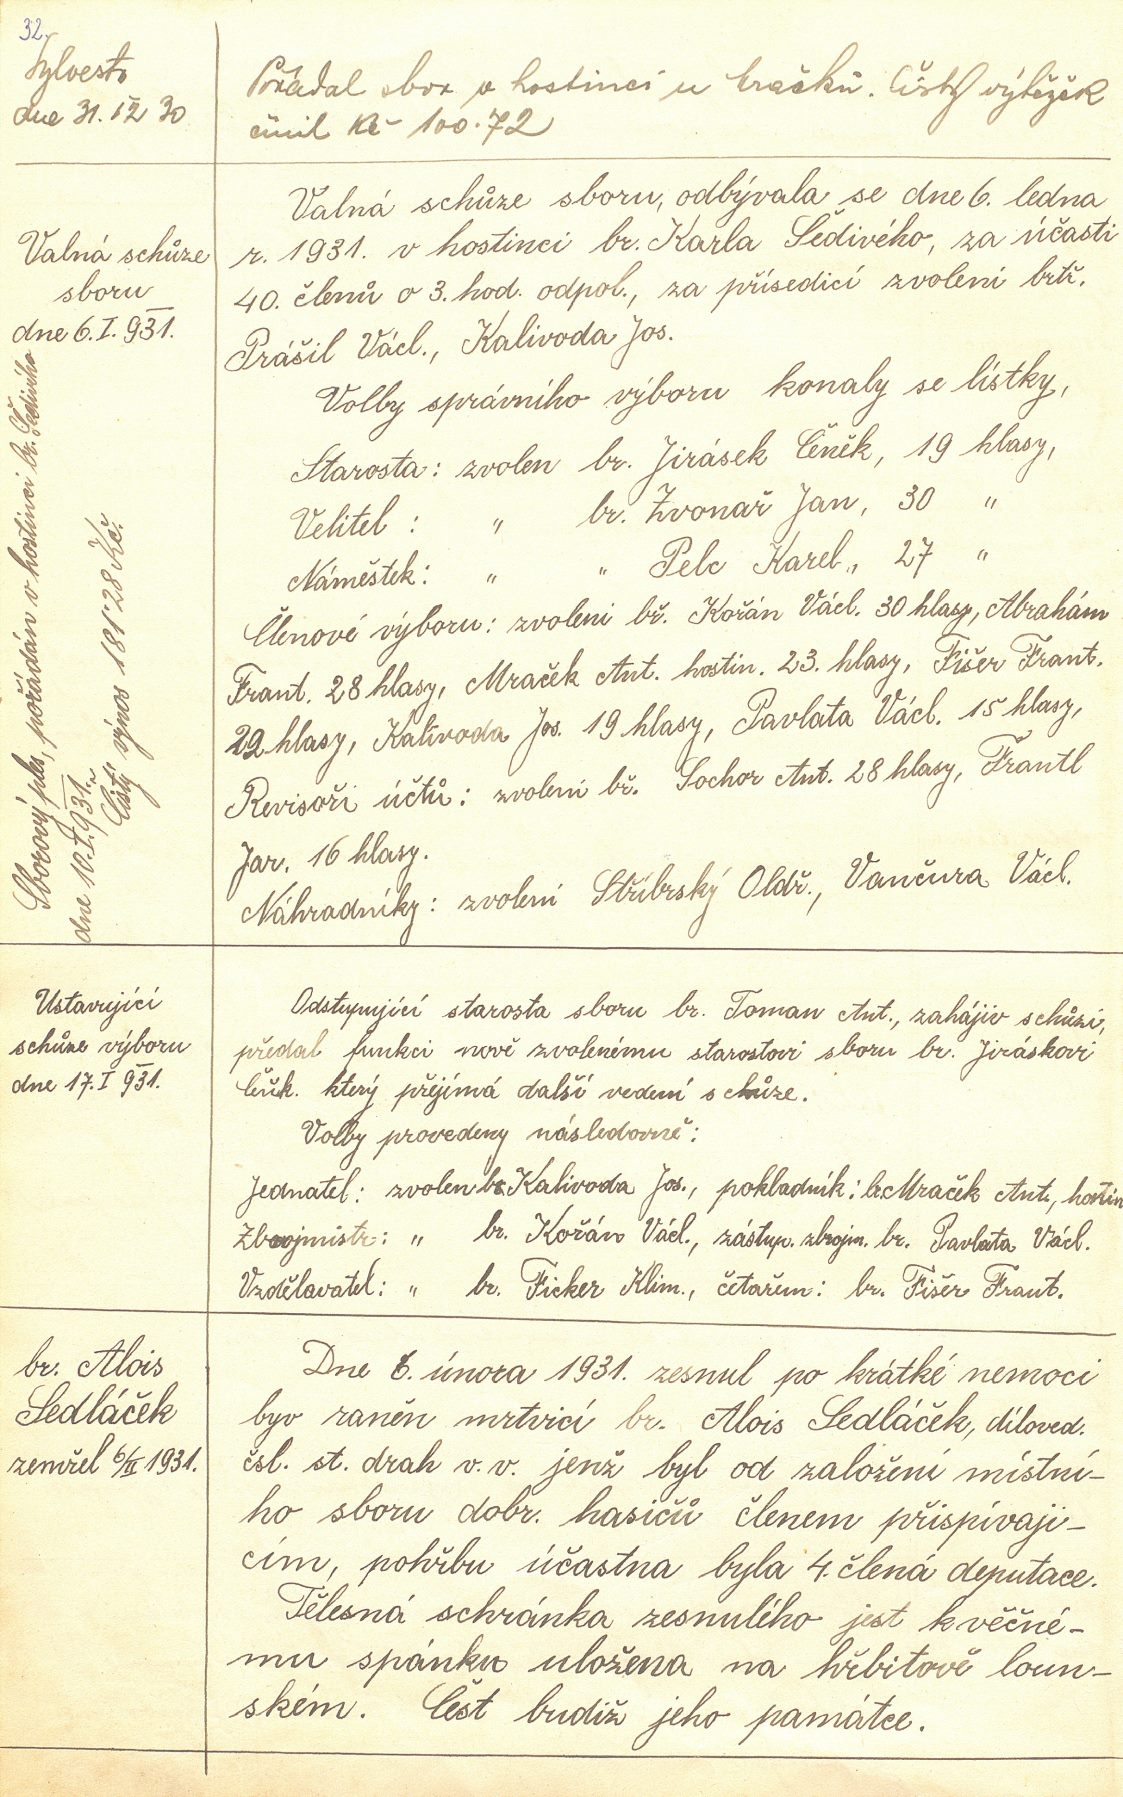 32.
Sylvestr
dne 31. XII 30
Pořádal sbor v hostinci u Mračků. Čistý výtěžek
činil Kč 100.72
Valná schůze
sboru
dne 6. I. 931.
Valná schůze sboru, odbývala se dne 6. ledna
r. 1931. v hostinci br. Karla Šedivého, za účasti
40. členů o 3. hod. odpol., za přísedící zvoleni brtř.
Prášil Václ., Kalivoda Jos.
Volby správního výboru konaly se lístky,
Starosta: zvolen br. Jirásek Čeněk, 19 hlasy,
Velitel: " br. Zvonař Jan, 30 "
Náměstek: " " Pelc Karel, 27 "
Členové výboru: zvoleni bř. Kořán Václ. 30 hlasy, Abrahám
Frant. 28 hlasy, Mraček Ant. hostin. 23. hlasy, Fišer Frant.
22 hlasy, Kalivoda Jos. 19 hlasy, Pavlata Václ. 15 hlasy,
Revisoři účtů: zvoleni bř. Sochor Ant. 28 hlasy, Frantl
Jar. 16 hlasy.
Náhradníky: zvoleni Stříbrský Oldř., Vančura Václ.
Sborový ples, pořádán v hostinci br. Šedivého
dne 10. I. 931.
Čistý výnos 181'28 Kč.
Ustavující
schůze výboru
dne 17. I 931.
Odstupující starosta sboru br. Toman Ant., zahájiv schůzi,
předal funkci nově zvolenému starostovi sboru br. Jiráskovi
Čeňk. který přejímá další vedení schůze.
Volby provedeny následovně:
Jednatel: zvolen br. Kalivoda Jos., pokladník: br. Mraček Ant., hostin
Zbrojmistr: " br. Kořán Václ., zástup. zbrojm. br. Pavlata Václ.
Vzdělavatel: " br. Ficker Klim., četařem: br. Fišer Frant.
br. Alois
Sedláček
zemřel 6/II 1931.
Dne 6. února 1931. zesnul po krátké nemoci
byv raněn mrtvicí br. Alois Sedláček, díloved.
čsl. st. drah v. v. jenž byl od založení místní-
ho sboru dobr. hasičů členem přispívají-
cím, pohřbu účastna byla 4. člená deputace.
Tělesná schránka zesnulého jest k věčné-
mu spánku uložena na hřbitově loun-
ském. Čest budiž jeho památce.